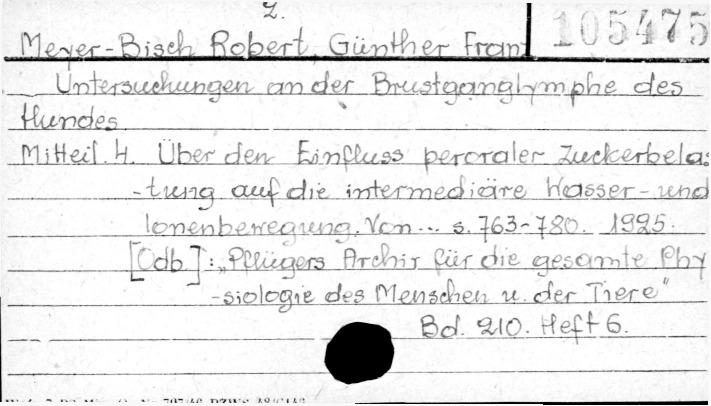 Z.
105475
Meyer-Bisch Robert, Günther Fran
Untersuchungen an der Brustganglymphe des
Hundes.
Mitteil. 4. Über den Einfluss peroraler Zuckerbelas
-tung auf die intermediäre Wasser- und
Ionenbewegung. Von... s. 763-780. 1925.
[Odb.]: „Pflügers Archiv für die gesamte Phy
-siologie des Menschen u. der Tiere"
Bd. 210. Heft 6.